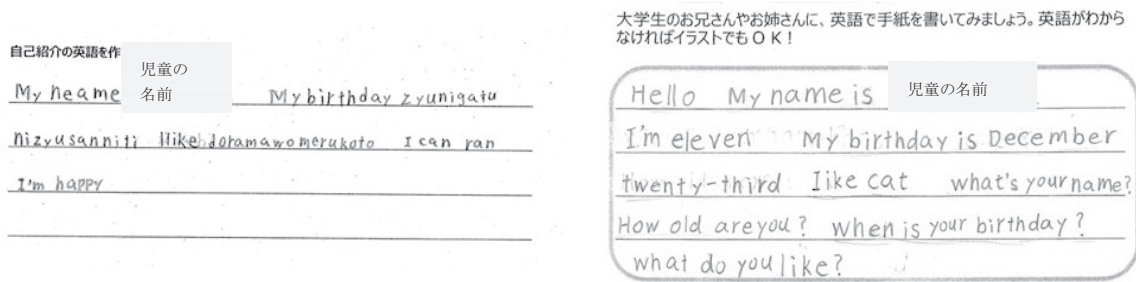 自己紹介の英語を作
児童の
名前
My neame
My birthday zyunigatu
nizyusanniti Ilike doramawomerukoto I can ran
I'm happy
大学生のお兄さんやお姉さんに、英語で手紙を書いてみましょう。英語がわから
なければイラストでもOK！
Hello My name is 児童の名前
I'm eleven My birthday is December
twenty-third Iike cat what's your name?
How old are you? when is your birthday?
what do you like?